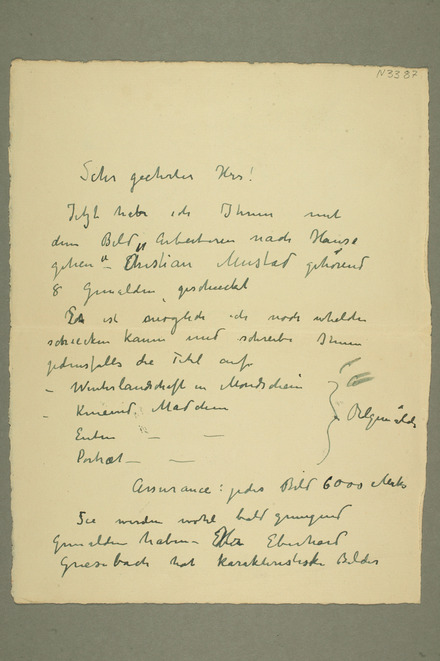 N3387
Sehr geehrter Herr!
Jetzt habe ich Ihnen mit
dem Bild „Arbeiteren nach Hause
gehen“ – Christian Mustad gehörend
8 Gemälden geschickt
Es ist möglich ich noch
schicken kann und schreibe Ihnen
jedenfalls die Titel auf
– Winterlandschaft in Mondschein
– Kniend. Mädchen
Enten — —
Portræt — —
Oelgemälde
Assurance: jedes Bild 6000 Mark
Sie werden wohl bald genügend
Gemälden haben – Eberhard
Griesebach hat karakteristiske Bilder